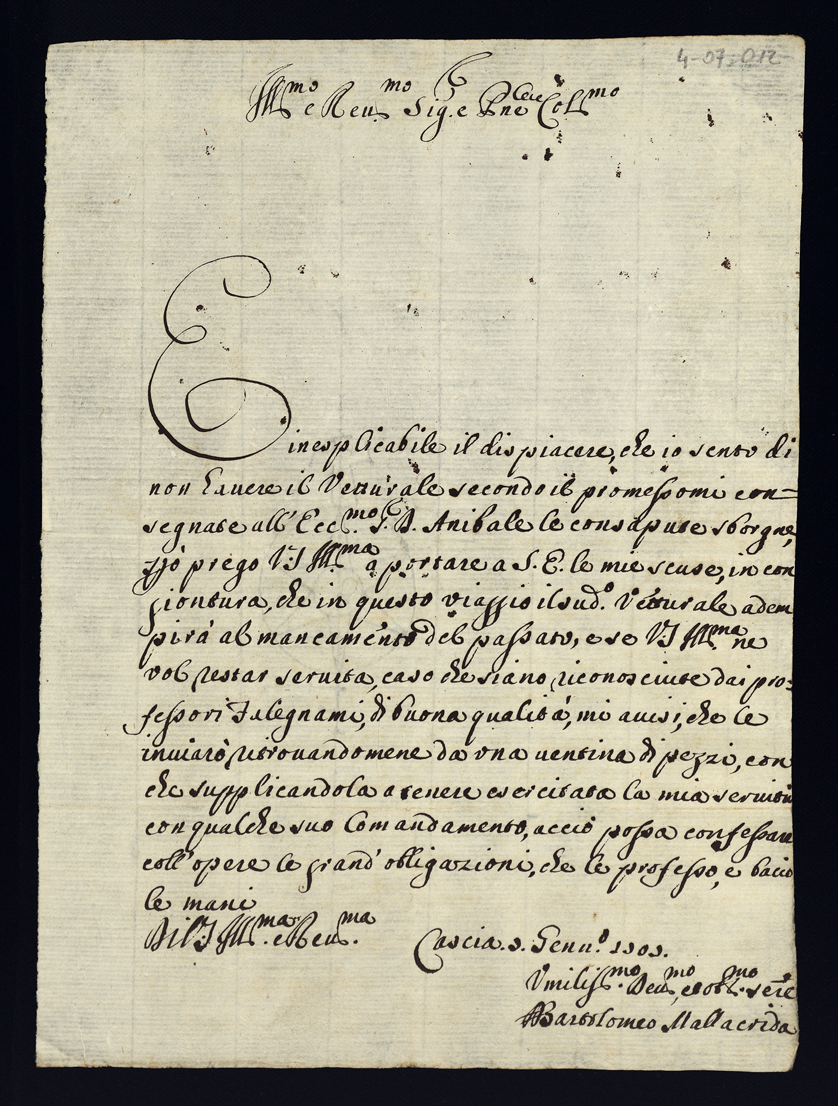 4-07-012
Ill.mo e Reu.mo Sig.e Pne Col.mo
E inesplicabile il dispiacere, che io sento di
non hauere il Vetturale secondo il promessomi con=
segnate all' Ecc.mo S. D. Anibale le consapute sborgne,
prego V.S. Ill.ma a portare a S. E. le mie scuse, in con
giontura, che in questo viaggio il sud.o Vetturale adem
pirà al mancamento del passato, e se V.S. Ill.ma ne
vol restar seruita, caso che siano riconosciute dai pro=
fessori Falegnami, di buona qualità, mi auisi, che le
inuiarò ritrouandomene da una uentina di pezzi, con
che supplicandola a tenere esercitata la mia seruitù
con qualche suo Comandamento, acciò possa confessare
coll' opere le grand' obligazioni, che le professo, e bacio
le mani
Di V.S. Ill.ma e Reu.ma
Cascia . Genn.o
Vmiliss.mo Deu.mo et obl.mo sere
Bartolomeo Mallacrida